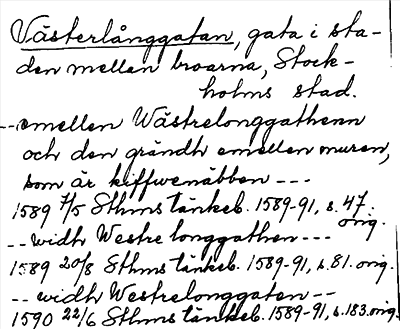 Västerlånggatan, gata i sta-
den mellan broarna, Stock-
holms stad.
--emellen Wästrelonggathenn
och den grändh emellen muren,
som är kiffwenäbben ---
1589 7/5 Sthms tänkeb. 1589-91, s. 47.
orig.
-- widh Westre longgathen ---
1589 20/8 Sthms tänkeb. 1589-91, s. 81. orig.
-- widh Westrelonggaten --
1590 22/6 Sthms tänkeb. 1589-91, s. 183. orig.